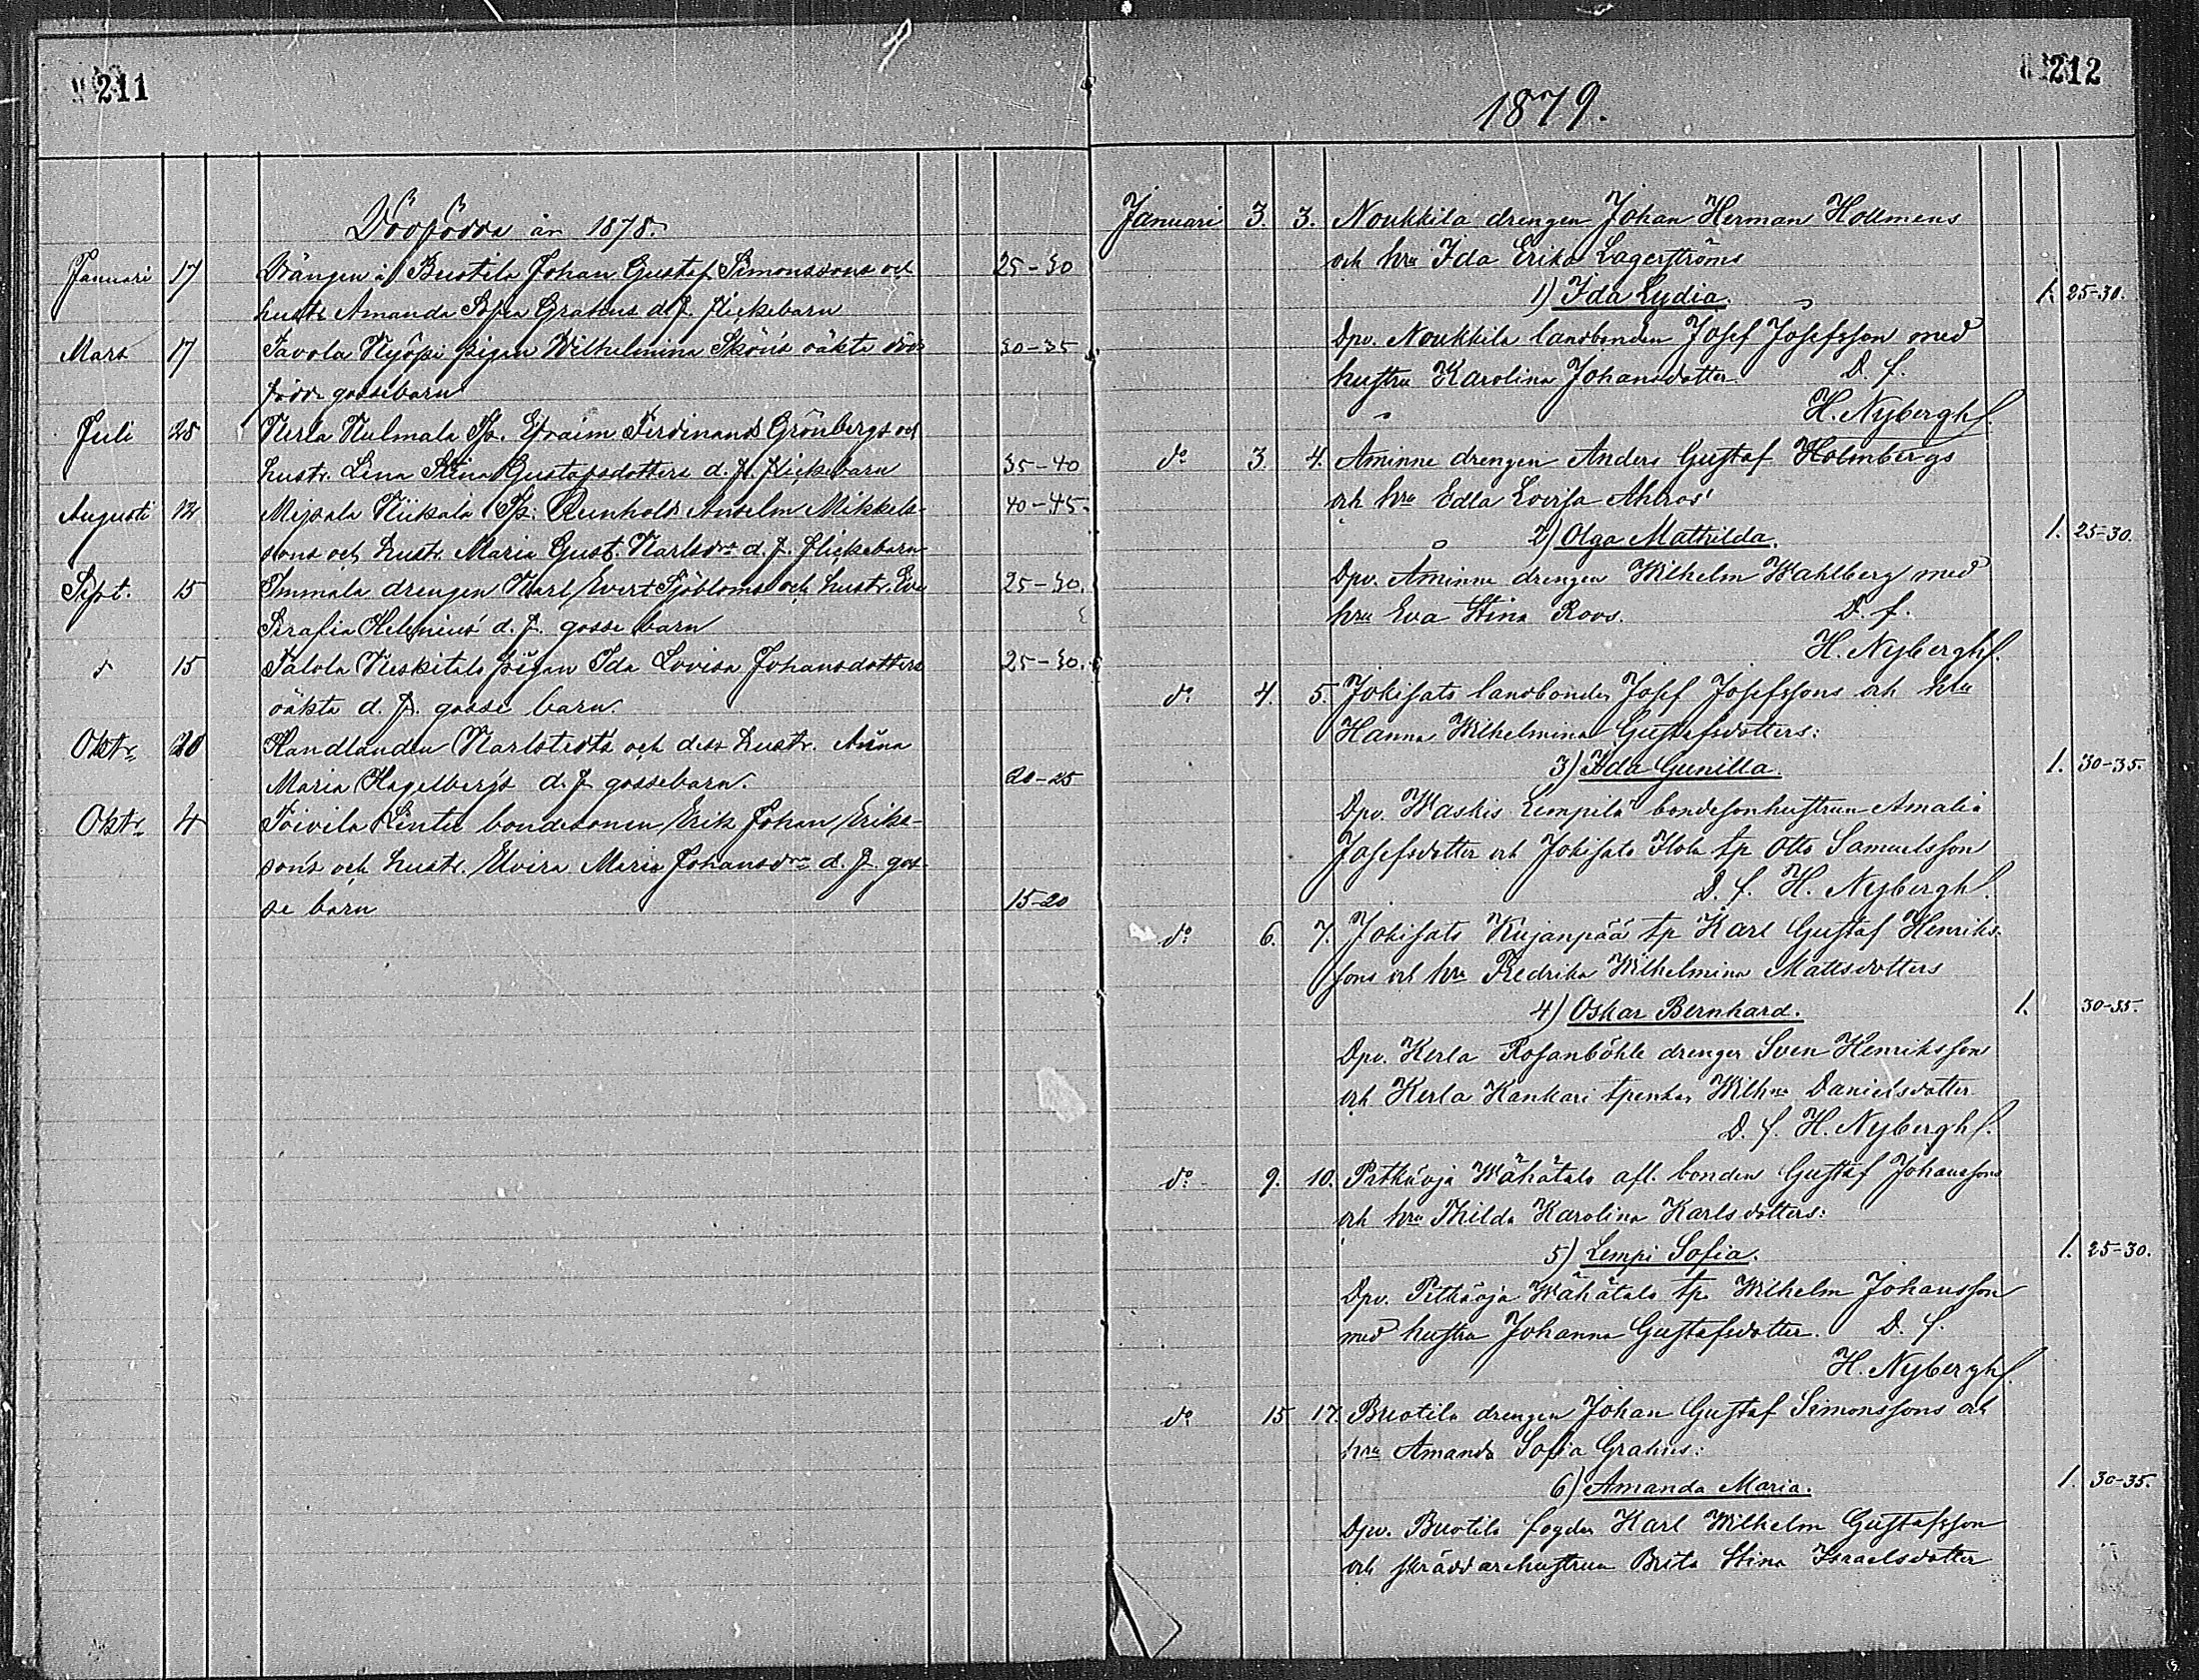 211
Dödfödda år 1878.
Januari 17 Drängen i Buotila Johan Gustaf Simonssons och 25-30
hustr. Amanda Sofia Grahns d.f. flickebarn
Mars 17 Tavola Nyöpi pigan Wilhelmina Sköns oäkta död- 30-35
födde gossebarn
Juli 28 Kerla Kulmala Tp. Efraim Ferdinand Grönbergs och
hustr. Lena Stina Gustafsdotters d.f. flickebarn 35-40
Augusti 12 Kiikala Tp: Reinhold Anselm Mikkels- 40-45.
sons och hustr. Maria Gust. Karlsdrs d.f. flickebarn
Sept. 15 Immala drengen Karl Evert Sjöbloms och hustr. Eva 25-30.
Serafia Helenius' d.f. gosse barn
d 15 Talola Keskitalo pigan Ida Lovisa Johansdotters 25-30.
oäkta d.f. gosse barn.
Oktr. 20 Handlanden Karlstedts och dess hustr. Anna
Maria Hagelbergs d.f. gossebarn. 20-25
Oktr. 4 Toivila Lintu bondesonen Erik Johan Eriks-
sons och hustr. Elvira Maria Johansdrs d.f. gos-
se barn 15-20
212
1879.
Januari 3. 3. Noukkila drengen Johan Herman Hollmens
och hru Ida Erika Lagerströms
1) Ida Lydia. 1. 25-30.
Dpv. Noukkila landbonden Josef Josefsson med
hustru Karolina Johansdotter. D. f.
H. Nybergh.
do 3. 4. Aminne drengen Anders Gustaf Holmbergs
och hru Edla Lovisa Ahlros'
2) Olga Mathilda. 1. 25-30.
Dpv. Aminne drengen Wilhelm Wahlberg med
hru Eva Stina Roos. D. f.
H. Nybergh.
do 4. 5. Jokisato landbonden Josef Josefssons och hru
Hanna Wilhelmina Gustafsdotters:
3) Ida Gunilla. 1. 30-35.
Dpv. Waskis Lempilä bondesonhustrun Amalia
Josefsdotter och Jokisato Ilola tp Otto Samuelsson
D. f. H. Nybergh.
do 6. 7. Jokisato Kujanpää tp Karl Gustaf Henriks-
sons och hru Fredrika Wilhelmina Mattsdotters
4) Oskar Bernhard. 1. 30-35.
Dpv. Kerla Rosanböhle drengen Sven Henriksson
och Kerla Kankari tpenkan Wilhna Danielsdotter
D. f. H. Nybergh.
do 9. 10. Pitkäoja Wähätalo afl. bonden Gustaf Johanssons
och hru Thilda Karolina Karlsdotters:
5) Lempi Sofia. 1. 25-30.
Dpv. Pitkäoja Wähätalo tp. Wilhelm Johansson
med hustru Johanna Gustafsdotter. D. f.
H. Nybergh.
do 15 17. Buotila drengen Johan Gustaf Simonssons och
hru Amanda Sofia Grahns:
6) Amanda Maria. 1. 30-35.
Dpv. Buotila fogden Karl Wilhelm Gustafsson
och skräddarehustrun Brita Stina Israelsdotter